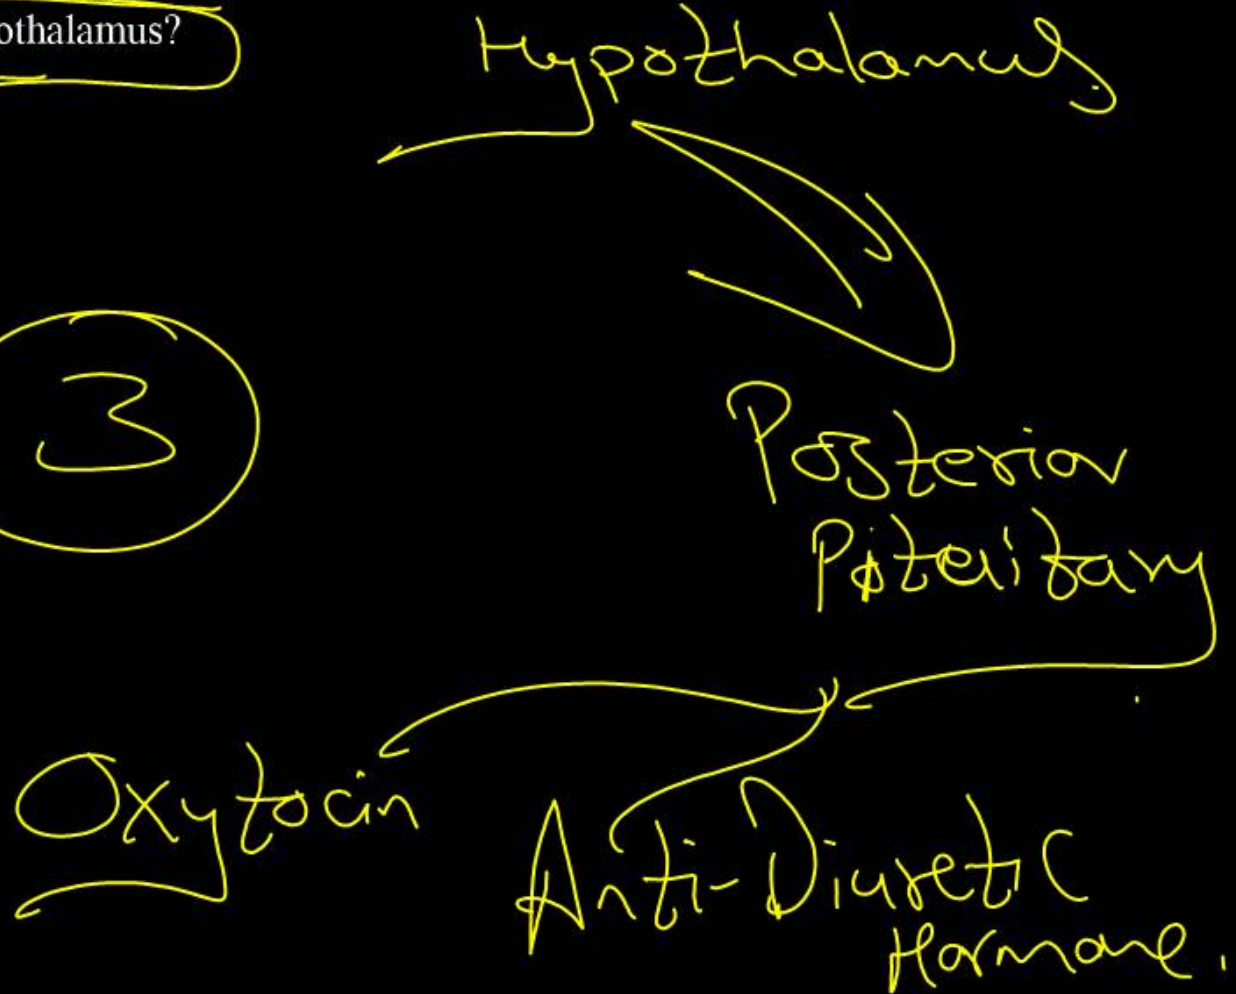 othalamus?
Hypothalamus
3
Posterior
Pituitary
Oxytocin
Anti-Diuretic
Hormone.